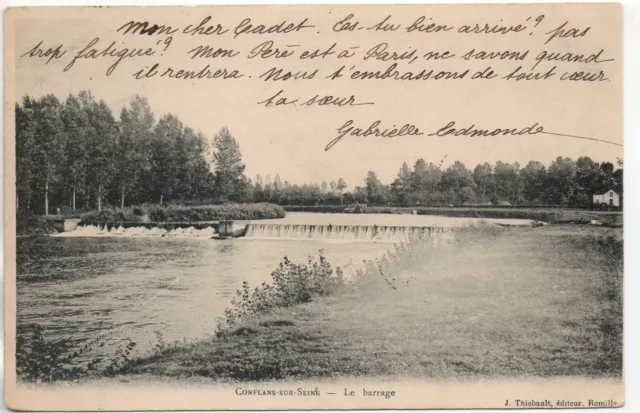 Mon cher Cadet. Es-tu bien arrivé? pas
trop fatigué? Mon Père est à Paris, ne savons quand
il rentrera. Nous t'embrassons de tout cœur
ta sœur
Gabrielle Edmonde
Conflans-sur-Seine — Le barrage
J. Thiebault, éditeur. Romilly